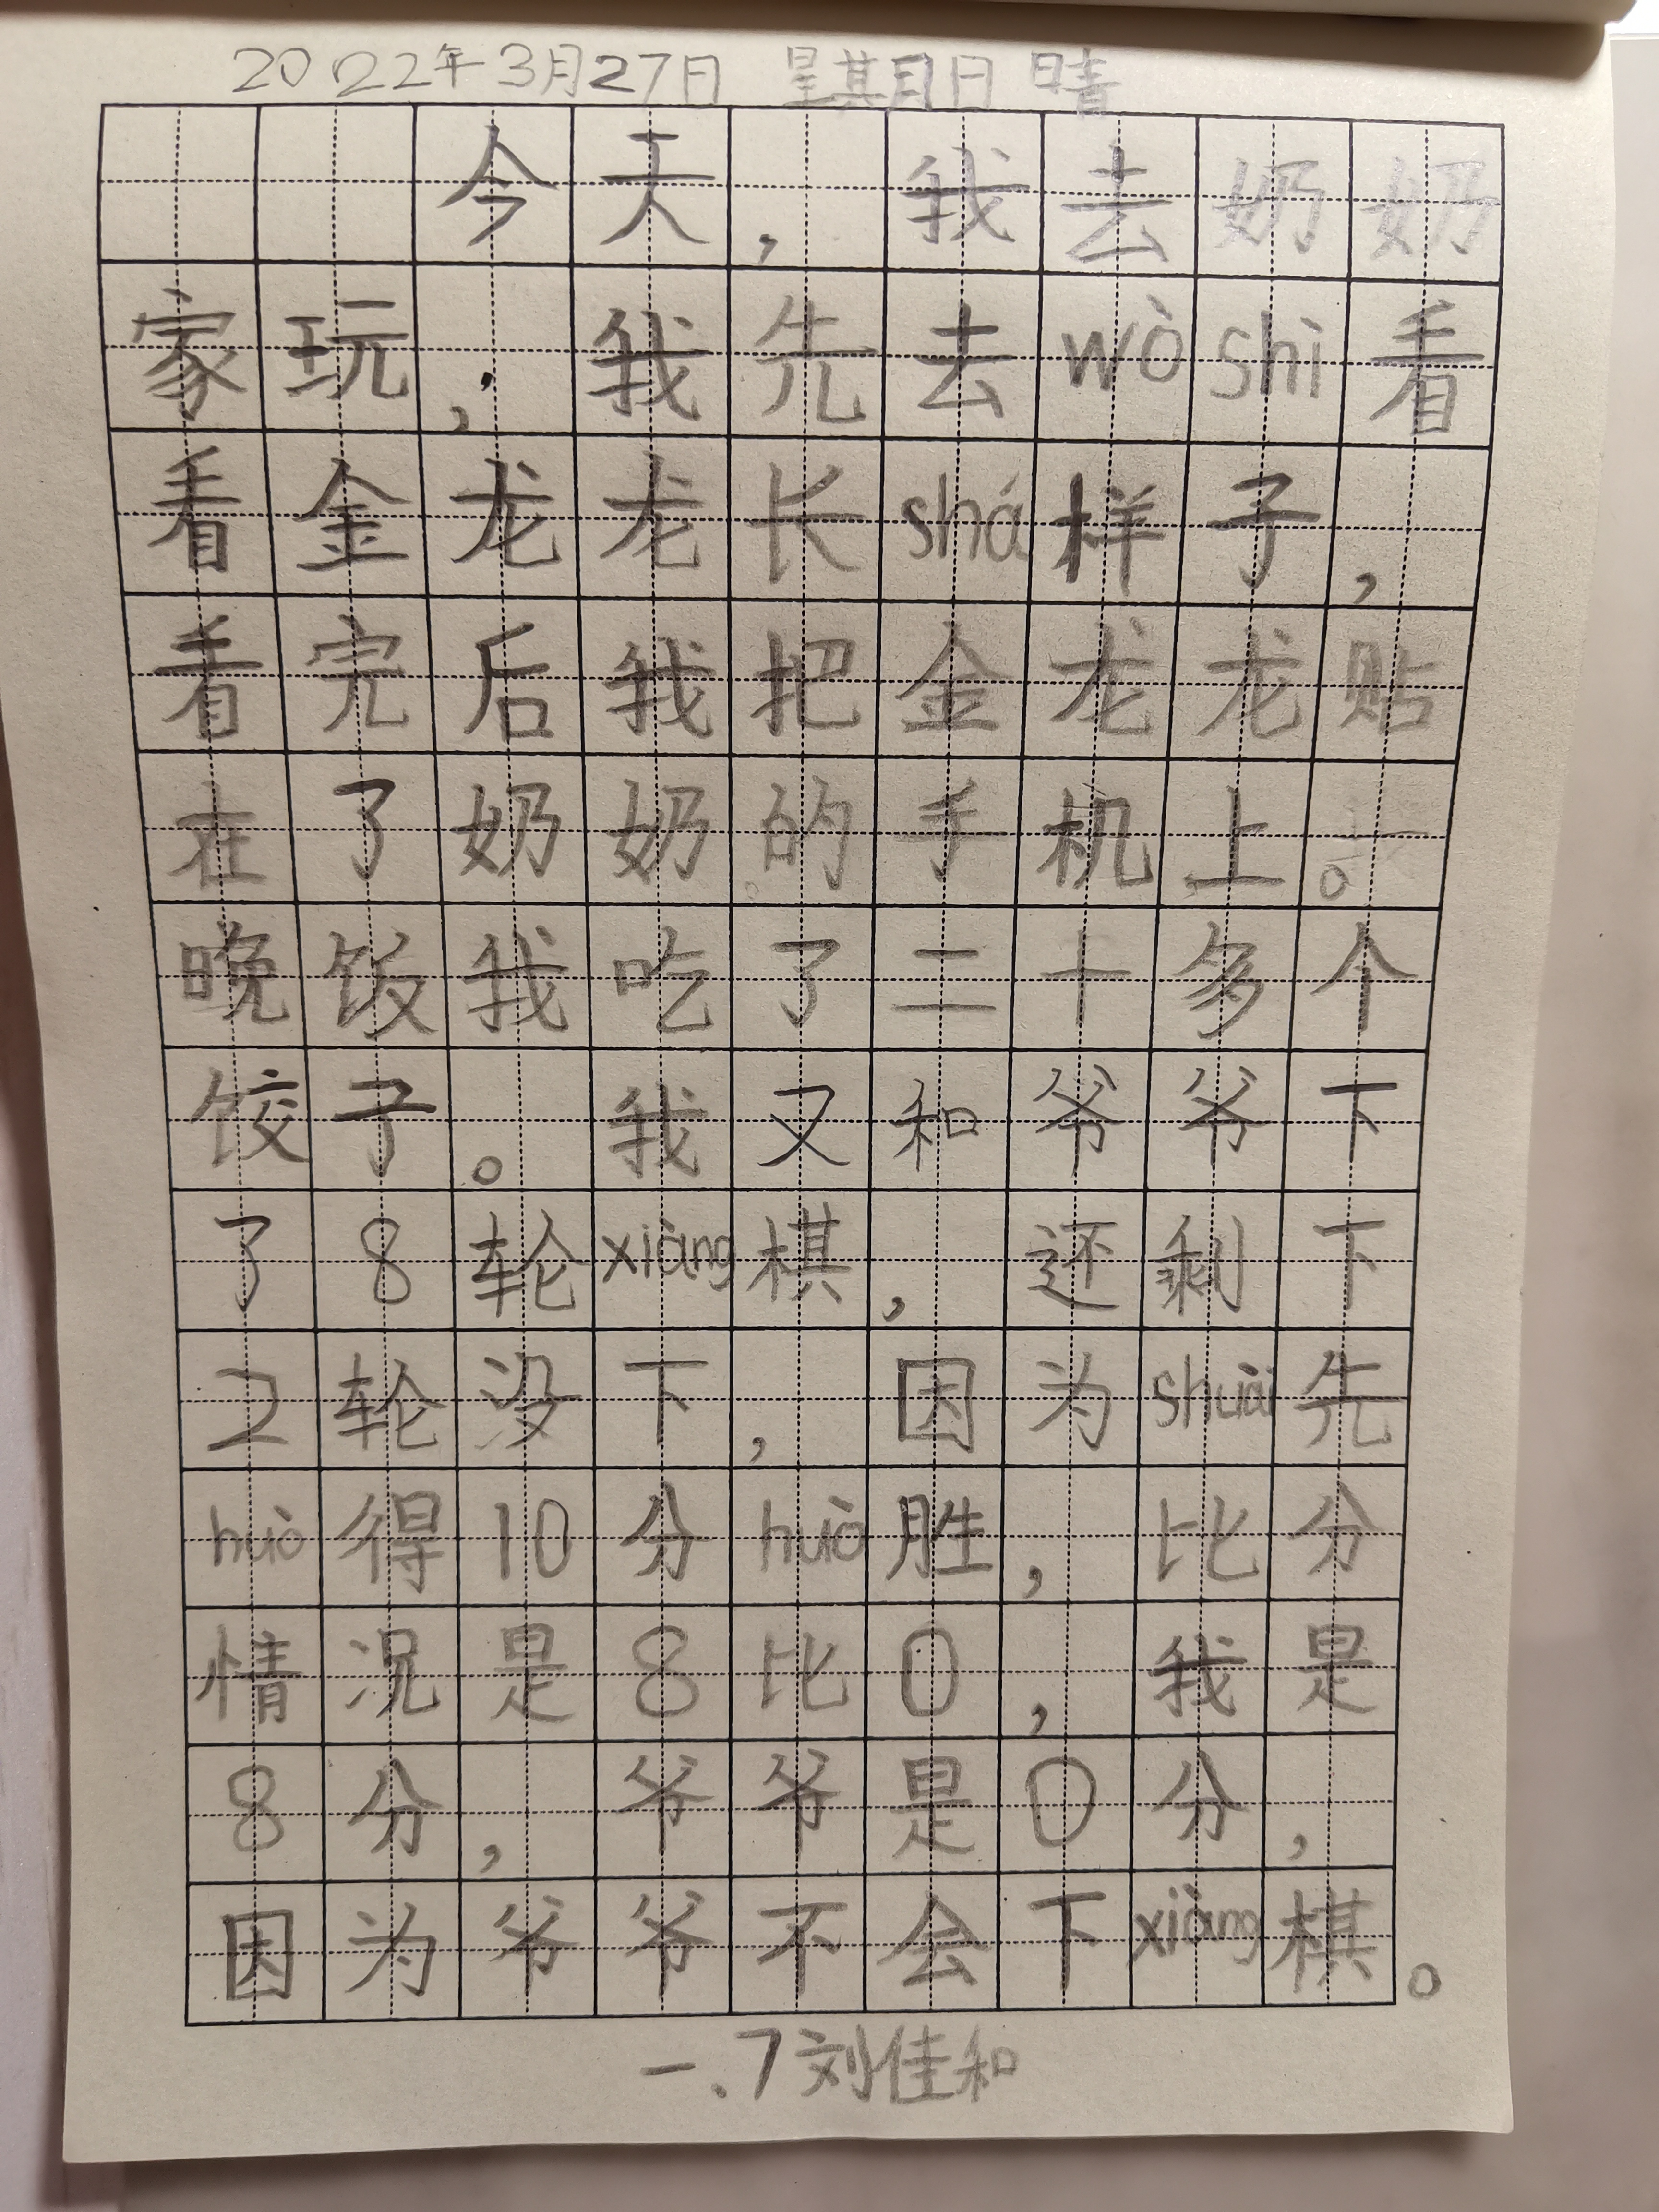 2022年3月27日 星期日 晴
今天，我去奶奶
家玩，我先去wò shì看
看金龙龙长shá样子，
看完后我把金龙龙贴
在了奶奶的手机上。
晚饭我吃了二十多个
饺子。我又和爷爷下
了8轮xiàng棋，还剩下
2轮没下，因为shuài先
huò得10分huò胜，比分
情况是8比0，我是
8分，爷爷是0分，
因为爷爷不会下xiàng棋。
一.7刘佳和